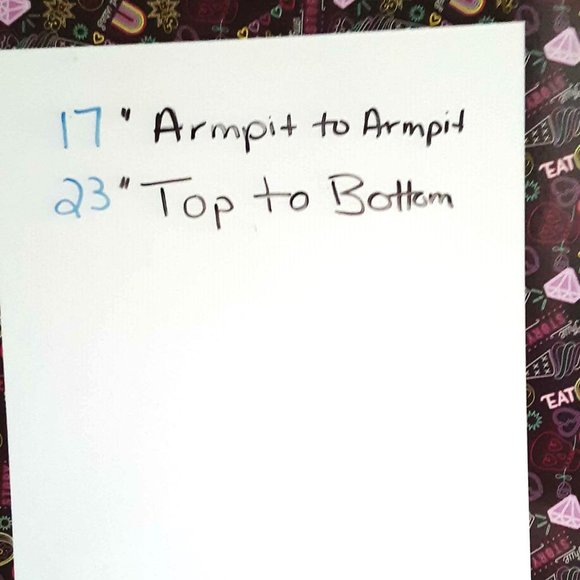 17" Armpit to Armpit
23" Top to Bottom
EAT
EAT
STORY